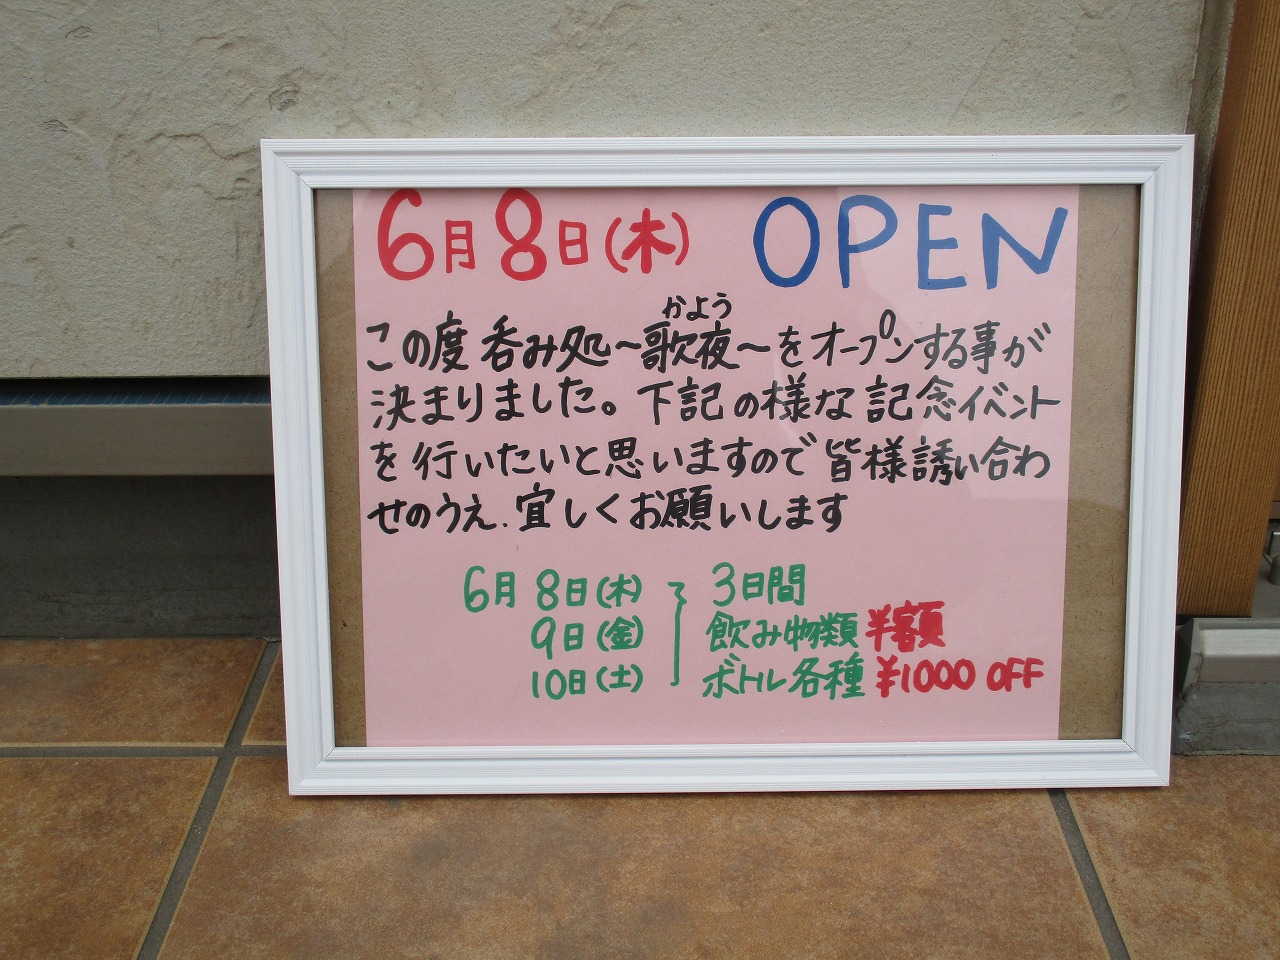 6月8日(木) OPEN
かよう
この度 呑み処~歌夜~をオープンする事が
決まりました。下記の様な記念イベント
を行いたいと思いますので皆様誘い合わ
せのうえ、宜しくお願いします
6月 8日(木) 3日間
9日(金) 飲み物類 半額
10日(土) ボトル各種 ¥1000 OFF